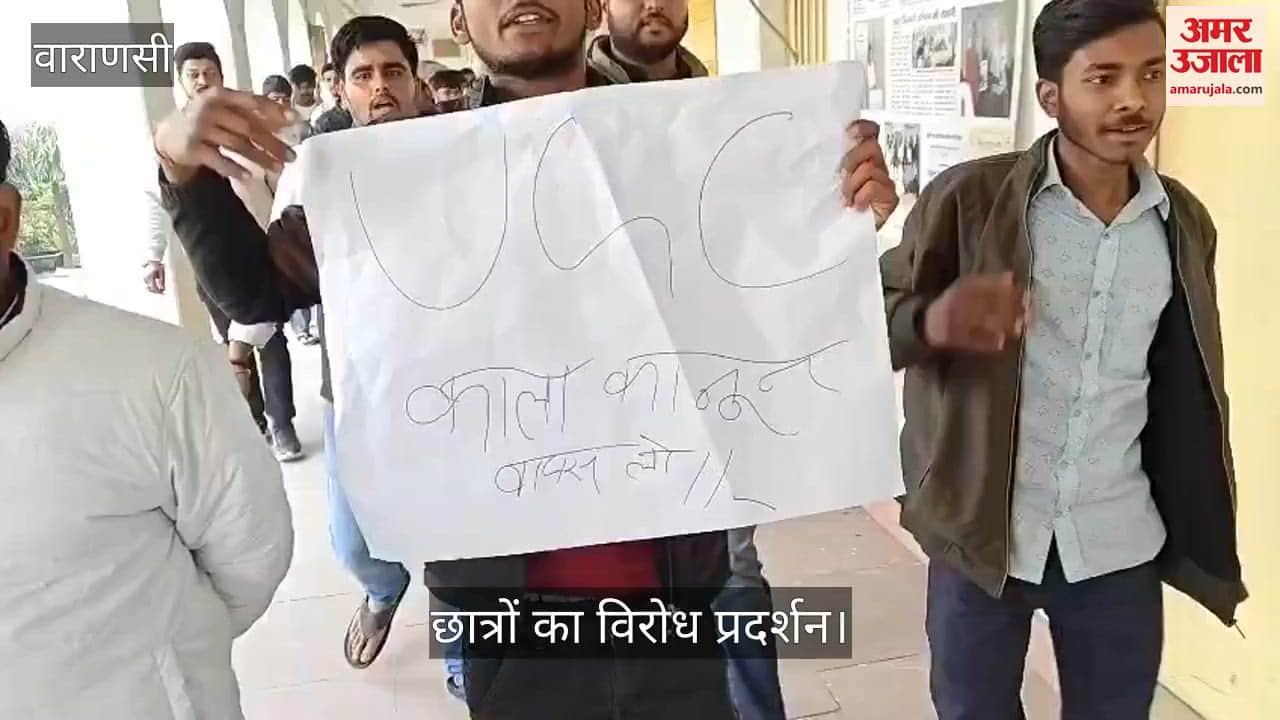 वाराणसी
अमर
उजाला
amarujala.com
UGC
काला कानून
वापस लो //
छात्रों का विरोध प्रदर्शन।